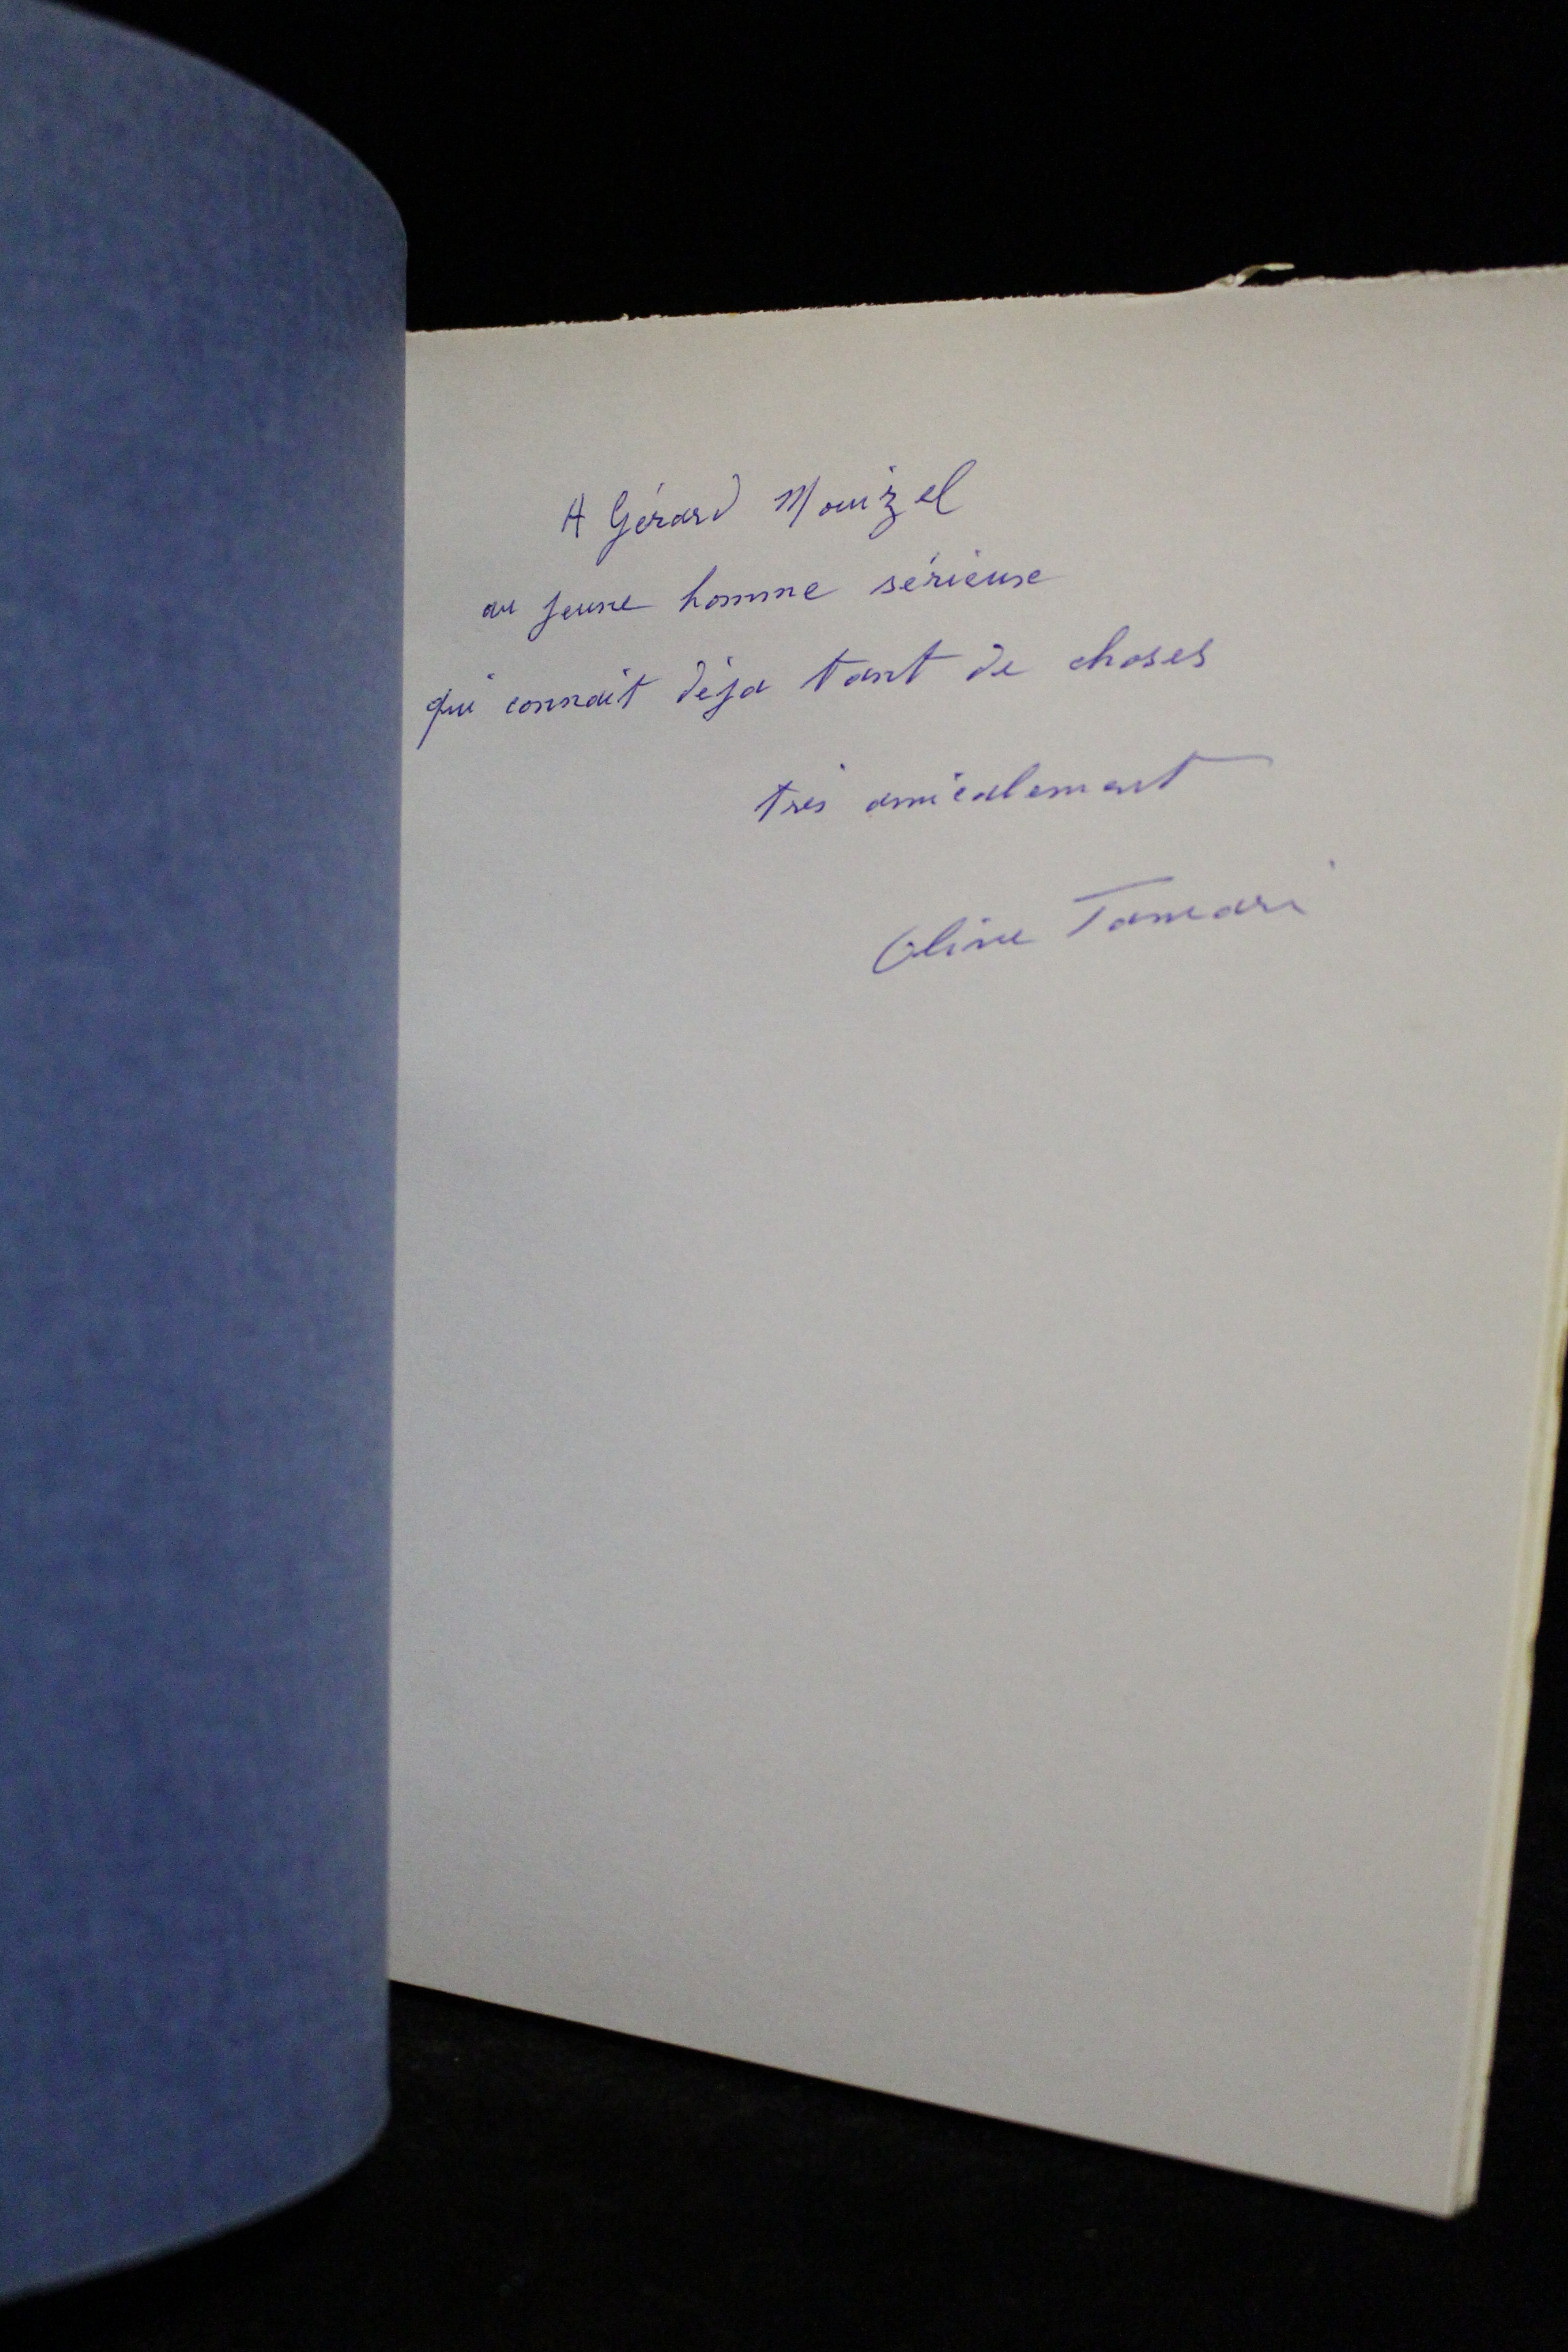 A Gérard Mouizel
au jeune homme sérieuse
qui connait déja tant de choses
très amicalement
Oline Tamari